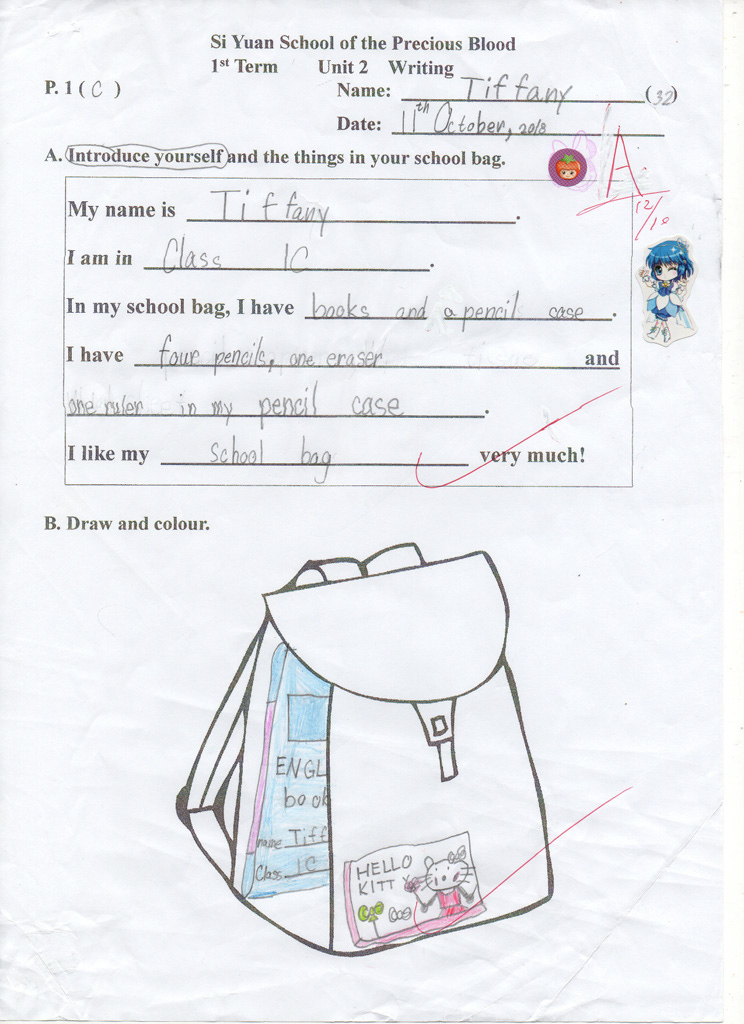 Si Yuan School of the Precious Blood
1st Term Unit 2 Writing
P. 1 ( C ) Name: Tiffany (32)
Date: 11th October, 2018
A. Introduce yourself and the things in your school bag.
A
12/10
My name is Tiffany.
I am in Class 1C.
In my school bag, I have books and a pencil case.
I have four pencils, one eraser and
one ruler in my pencil case.
I like my school bag very much!
B. Draw and colour.
ENGL
book
name Tiff
Class 1C
HELLO
KITTY